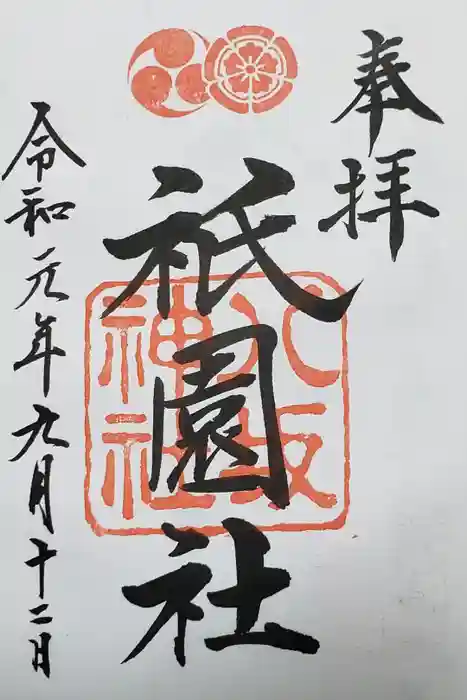 奉拝
祇園社
八坂
神社
令和元年九月十二日